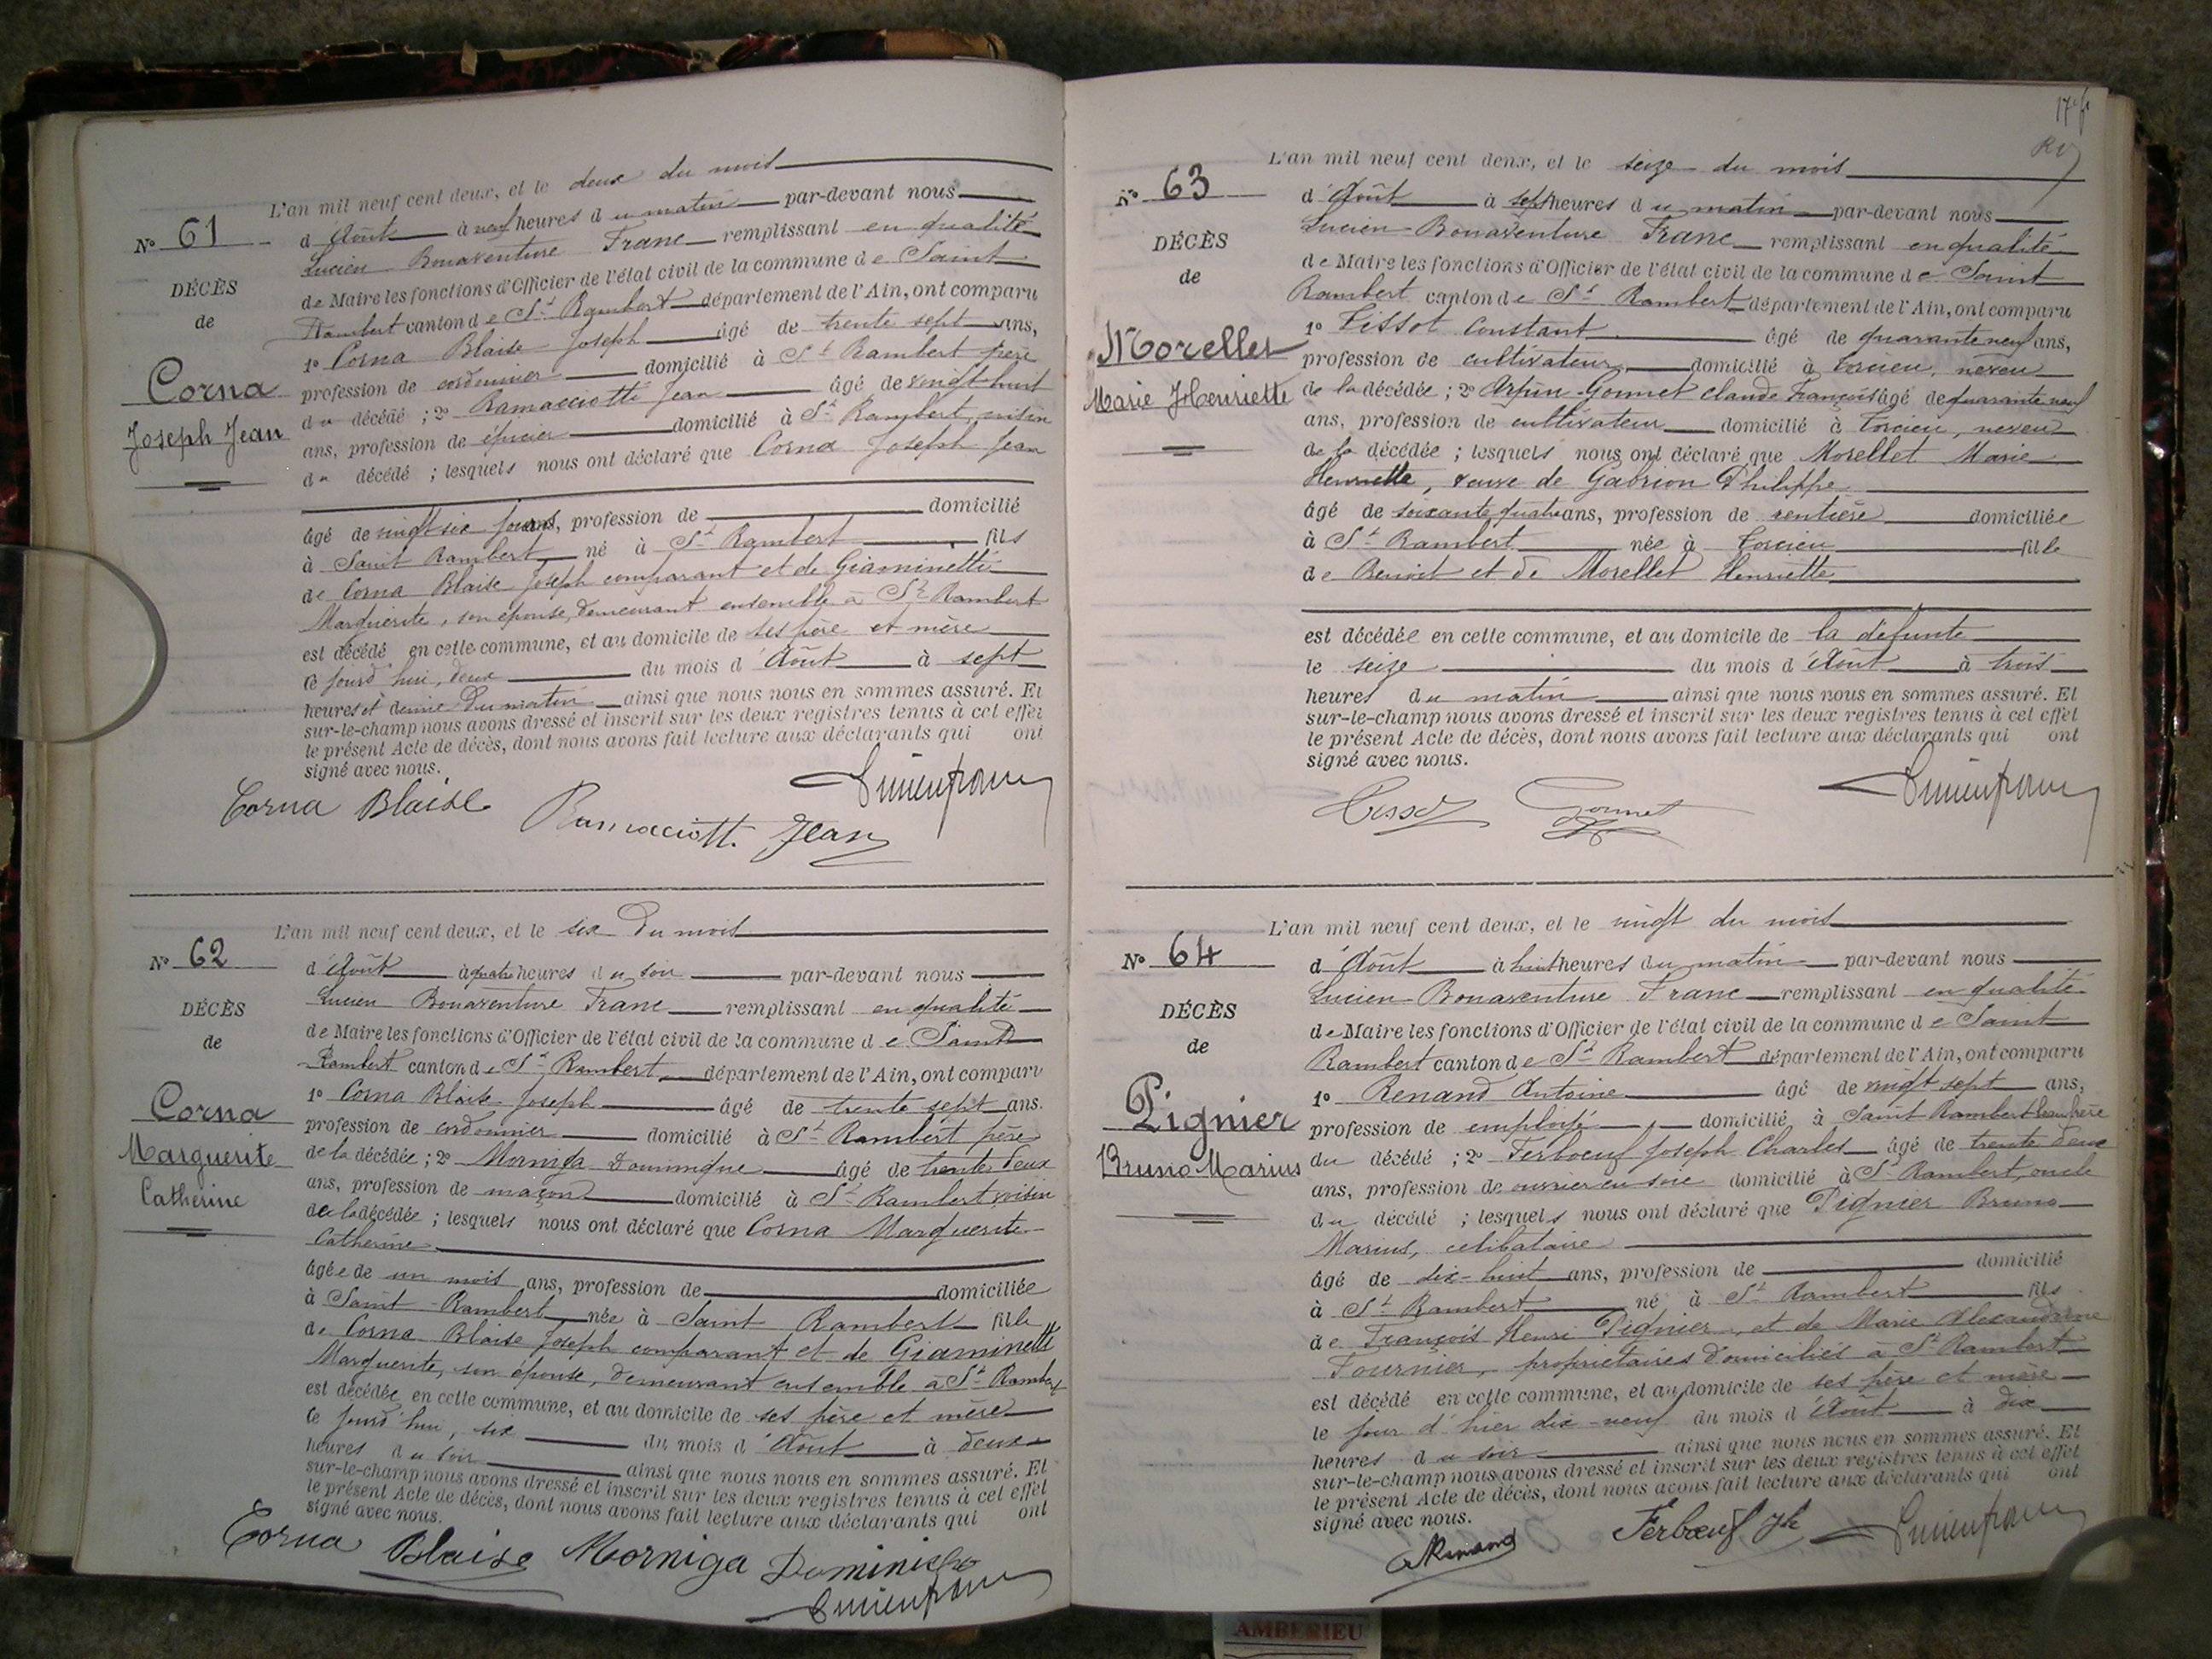 L'an mil neuf cent deux, et le deux du mois
N° 61
d'Août à neuf heures du matin par-devant nous
Lucien Bonaventure Franc remplissant en qualité
DÉCÈS
de Maire les fonctions d'Officier de l'état civil de la commune de Saint
de
Rambert canton de St Rambert département de l'Ain, ont comparu
1° Corna Blaise Joseph âgé de trente sept ans,
Corna
profession de cordonnier domicilié à St Rambert père
Joseph Jean
du décédé ; 2° Ramacciotti Jean âgé de vingt-huit
ans, profession de épicier domicilié à St Rambert, voisin
du décédé ; lesquels nous ont déclaré que Corna Joseph Jean
âgé de vingt six jours, profession de domicilié
à Saint Rambert né à St Rambert fils
de Corna Blaise Joseph comparant et de Giaminetti
Marguerite, son épouse, demeurant ensemble à St Rambert
est décédé en cette commune, et au domicile de ses père et mère
ce jourd'hui, deux du mois d'Août à sept
heures et demie du matin ainsi que nous nous en sommes assuré. Et
sur-le-champ nous avons dressé et inscrit sur les deux registres tenus à cet effet
le présent Acte de décès, dont nous avons fait lecture aux déclarants qui ont
signé avec nous.
Corna Blaise Ramacciotti Jean Lucien franc
L'an mil neuf cent deux, et le six du mois
N° 62
d'Août à quatre heures du soir par-devant nous
Lucien Bonaventure Franc remplissant en qualité
DÉCÈS
de Maire les fonctions d'Officier de l'état civil de la commune de Saint
de
Rambert canton de St Rambert département de l'Ain, ont comparu
1° Corna Blaise Joseph âgé de trente sept ans.
Corna
profession de cordonnier domicilié à St Rambert père
Marguerite
de la décédée ; 2° Morniga Dominique âgé de trente deux
Catherine
ans, profession de maçon domicilié à St Rambert voisin
de la décédée ; lesquels nous ont déclaré que Corna Marguerite
Catherine
âgée de un mois ans, profession de domiciliée
à Saint-Rambert née à Saint Rambert fille
de Corna Blaise Joseph comparant et de Giaminetti
Marguerite, son épouse, demeurant ensemble à St Rambert
est décédée en cette commune, et au domicile de ses père et mère
ce jourd'hui, six du mois d'Août à deux
heures du soir ainsi que nous nous en sommes assuré. Et
sur-le-champ nous avons dressé et inscrit sur les deux registres tenus à cet effet
le présent Acte de décès, dont nous avons fait lecture aux déclarants qui ont
signé avec nous.
Corna Blaise Morniga Dominique
Lucien franc
L'an mil neuf cent deux, et le seize du mois
N° 63
d'Août à sept heures du matin par-devant nous
Lucien Bonaventure Franc remplissant en qualité
DÉCÈS
de Maire les fonctions d'Officier de l'état civil de la commune de Saint
de
Rambert canton de St Rambert département de l'Ain, ont comparu
1° Tissot Constant âgé de quarante neuf ans,
Morellet
profession de cultivateur, domicilié à Torcieu, neveu
Marie Henriette
de la décédée ; 2° Arpin-Gonnet Claude François âgé de quarante neuf
ans, profession de cultivateur domicilié à Torcieu, neveu
de la décédée ; lesquels nous ont déclaré que Morellet Marie
Henriette, veuve de Gabrion Philippe
âgé de soixante quatre ans, profession de rentière domiciliée
à St Rambert née à Torcieu fille
de Benoit et de Morellet Henriette
est décédée en cette commune, et au domicile de la défunte
le seize du mois d'Août à trois
heures du matin ainsi que nous nous en sommes assuré. Et
sur-le-champ nous avons dressé et inscrit sur les deux registres tenus à cet effet
le présent Acte de décès, dont nous avons fait lecture aux déclarants qui ont
signé avec nous.
Tissot Gonnet Lucien franc
L'an mil neuf cent deux, et le vingt du mois
N° 64
d'Août à huit heures du matin par-devant nous
Lucien Bonaventure Franc remplissant en qualité
DÉCÈS
de Maire les fonctions d'Officier de l'état civil de la commune de Saint
de
Rambert canton de St Rambert département de l'Ain, ont comparu
1° Renand Antoine âgé de vingt sept ans,
Pignier
profession de employé, domicilié à Saint Rambert beau frère
Bruno Marius
du décédé ; 2° Ferboeuf Joseph Charles âgé de trente deux
ans, profession de ouvrier en soie domicilié à St Rambert, oncle
du décédé ; lesquels nous ont déclaré que Pignier Bruno
Marius, célibataire
âgé de dix-huit ans, profession de domicilié
à St Rambert né à St Rambert fils
de François Henri Pignier, et de Marie Alexandrine
Fournier, propriétaires domiciliés à St Rambert
est décédé en cette commune, et au domicile de ses père et mère
le jour d'hier dix-neuf du mois d'Août à dix
heures du soir ainsi que nous nous en sommes assuré. Et
sur-le-champ nous avons dressé et inscrit sur les deux registres tenus à cet effet
le présent Acte de décès, dont nous avons fait lecture aux déclarants qui ont
signé avec nous.
A Renand Ferboeuf Jh Lucien franc
AMBERIEU